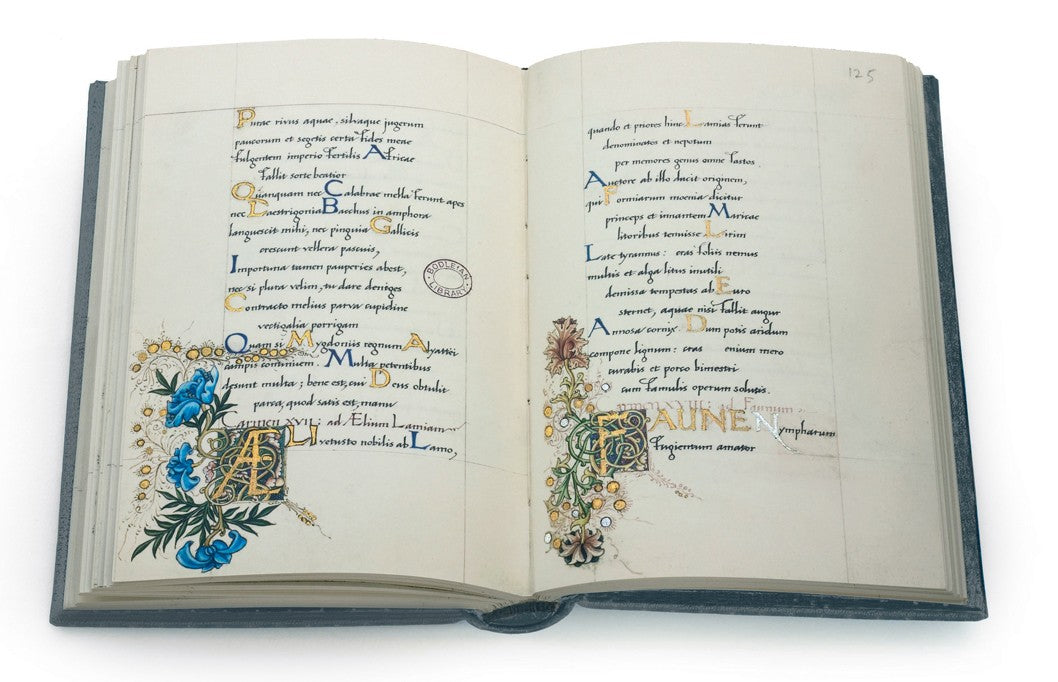 Purae rivus aquae, silvaque jugerum
paucorum et segetis certa fides meae
fulgentem imperio fertilis Africae
fallit sorte beatior
Quanquam nec Calabrae mella ferunt apes
nec Laestrigonia Bacchus in amphora
languescit mihi, nec pinguia Gallicis
crescunt vellera pascuis,
Importuna tamen pauperies abest,
nec si plura velim, tu dare deniges
Contracto melius parva cupidine
vectigalia porrigam
Quam si Mygdoniis regnum Alyattei
campis continuem. Multa petentibus
desunt multa; bene est, cui Deus obtulit
parca, quod satis est, manu
Carmen XVII: ad Ælium Lamiam
ÆLI vetusto nobilis ab Lamo,
BODLEIAN LIBRARY
125
quando et priores hinc Lamias ferunt
denominatos et nepotum
per memores genus omne fastos.
Auctore ab illo ducit originem,
qui Formiarum moenia dicitur
princeps et innantem Maricae
litoribus tenuisse Lirim
Late tyrannus: cras foliis nemus
multis et alga litus inutili
demissa tempestas ab Euro
sternet, aquae nisi fallit augur
Annosa cornix. Dum potis aridum
compone lignum: cras enium mero
curabis et porco bimestri
cum famulis operum solutis.
Carmen XVIII: ad Faunum.
FAUNE Nympharum
fugientum amator